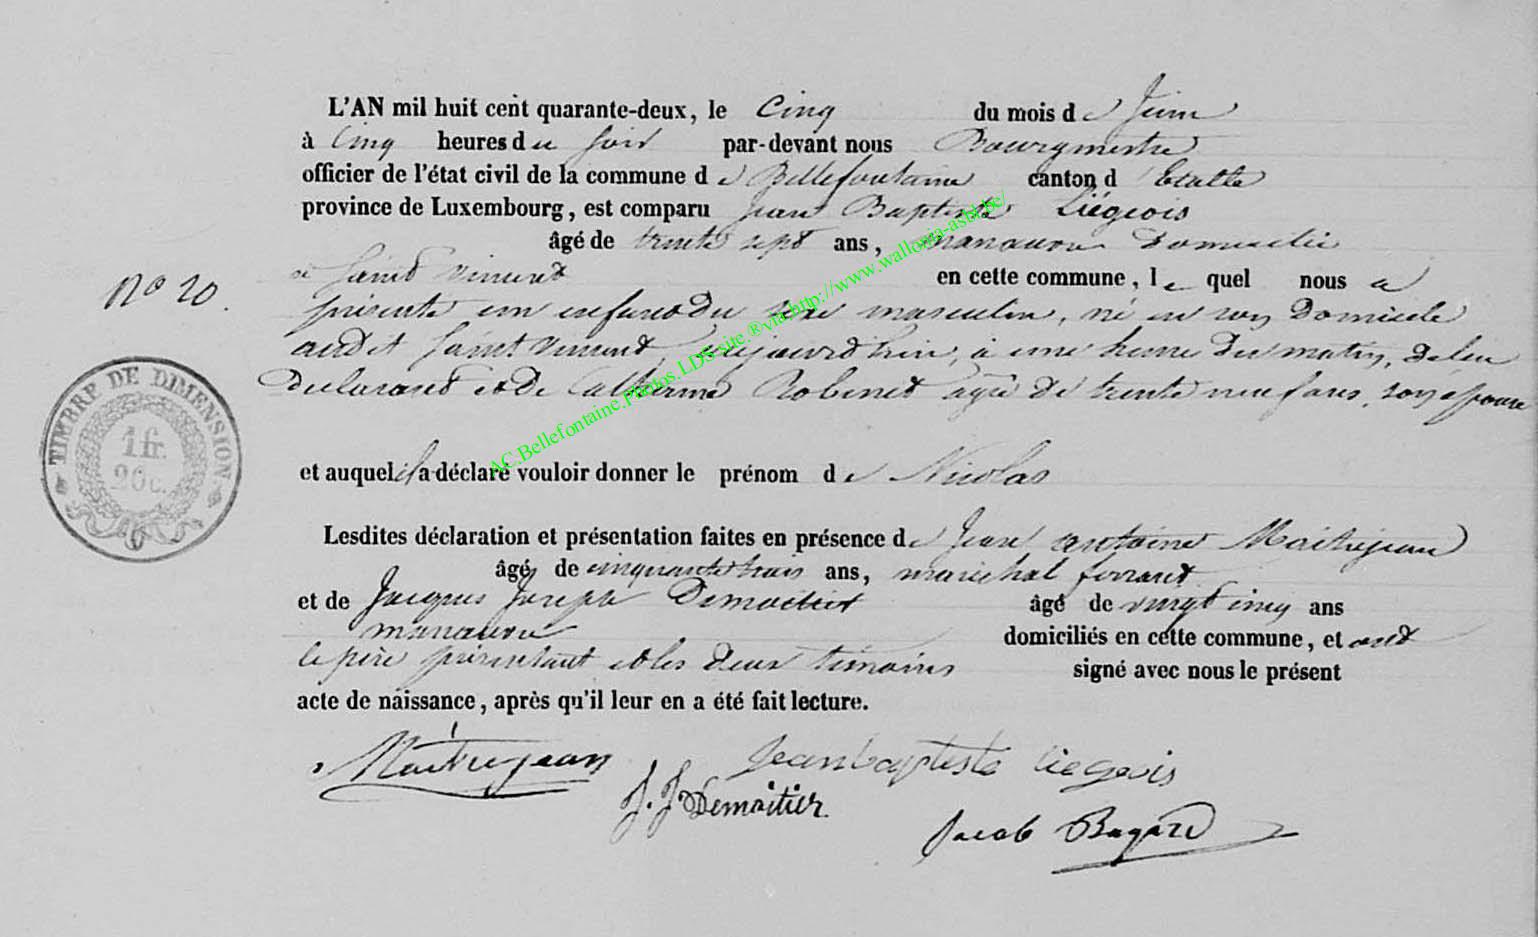 L'AN mil huit cent quarante-deux, le Cinq du mois de Juin
à Cinq heures du soir par-devant nous Bourgmestre
officier de l'état civil de la commune de Bellefontaine canton d'Etalle
province de Luxembourg, est comparu Jean Baptiste Liégeois
âgé de trente sept ans, manœuvre domicilié
à Saint Vincent en cette commune, lequel nous a
N° 20.
présenté un enfant du sexe masculin, né en son domicile
audit Saint Vincent, aujourd'hui, à une heure du matin, de lui
déclarant et de Catherine Robinet agée de trente neuf ans, son épouse
TIMBRE DE DIMENSION
1 fr.
20 c.
et auquel il a déclaré vouloir donner le prénom de Nicolas
Lesdites déclaration et présentation faites en présence de Jean antoine Maitrejean
âgé de cinquante trois ans, maréchal ferrant
et de Jacques Joseph Demoitier âgé de vingt cinq ans
manœuvre domiciliés en cette commune, et ont
le père présentant et les deux témoins signé avec nous le présent
acte de naissance, après qu'il leur en a été fait lecture.
Maitrejean Jeanbaptiste liegeois
J. J Demoitier
Jacob Bagard
AC.Bellefontaine.Photos.LDS-site.®via.http://www.wallonia-asbl.be/